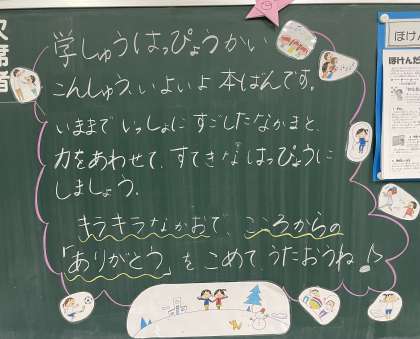 欠席者
学しゅうはっぴょうかい
こんしゅう、いよいよ本ばんです。
いままでいっしょにすごしたなかまと、
力をあわせて、すてきなはっぴょうに
しましょう。
キラキラなかおで、こころからの
「ありがとう」をこめて、うたおうね!♪
ほけん
ほけんだ